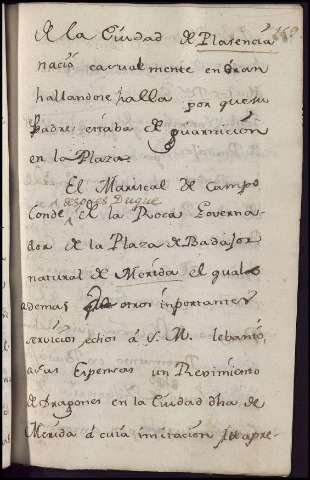 de la Ciudad de Plasencia
nacio casualmente en Oran
hallandose halla por que su
Padre estaba de guarnicion
en la Plaza.
El Mariscal de Campo
despues Duque
Conde de la Roca Governa-
dor de la Plaza de Badajoz
natural de Merida el qual
ademas otros inportantes
servicios echos á S. M. lebantó
a sus Expensas un Regimiento
de Dragones en la Ciudad dha de
Merida á cuia imitacion se apre-